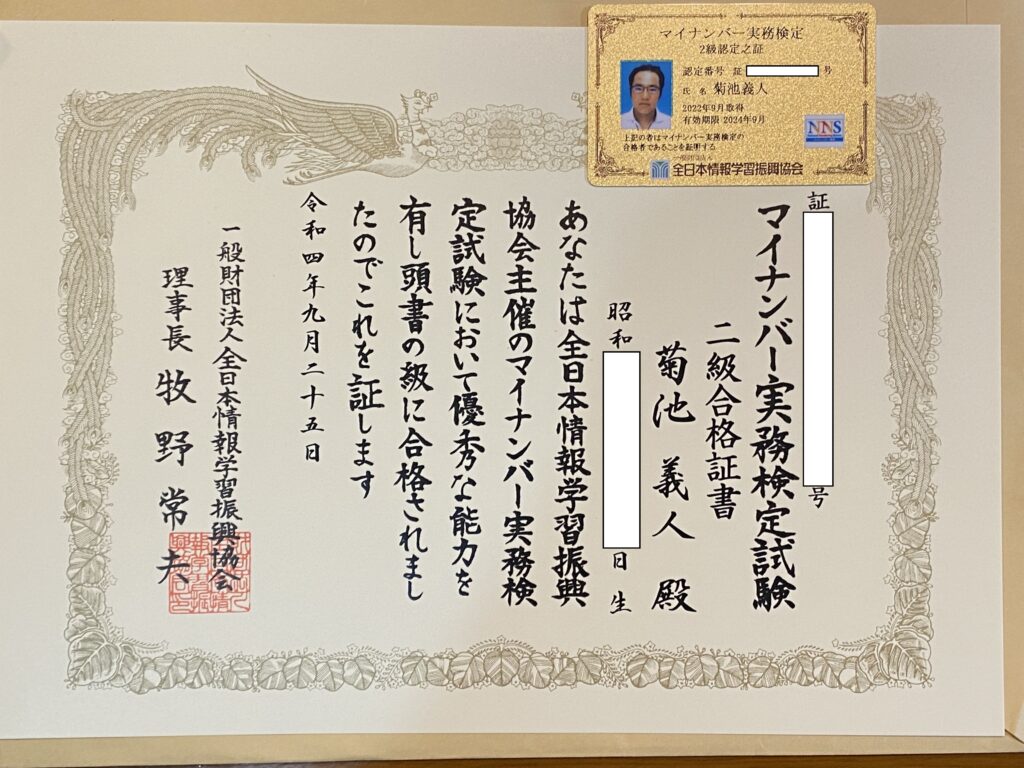 マイナンバー実務検定
2級認定之証
認定番号 証 号
氏名 菊池義人
2022年9月取得
有効期限 2024年9月
上記の者はマイナンバー実務検定の
合格者であることを証明する
一般財団法人
全日本情報学習振興協会
NNS
証 号
マイナンバー実務検定試験
二級合格証書
菊池義人殿
昭和 日生
あなたは全日本情報学習振興
協会主催のマイナンバー実務検
定試験において優秀な能力を
有し頭書の級に合格されまし
たのでこれを証します
令和四年九月二十五日
一般財団法人全日本情報学習振興協会
理事長 牧野常夫